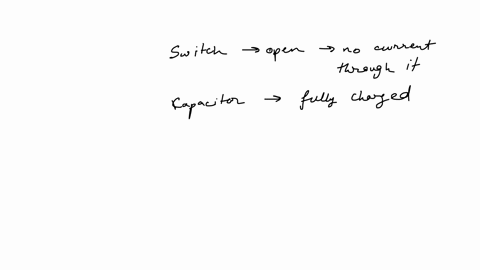 Switch → open → no current
through it
Capacitor → fully charged